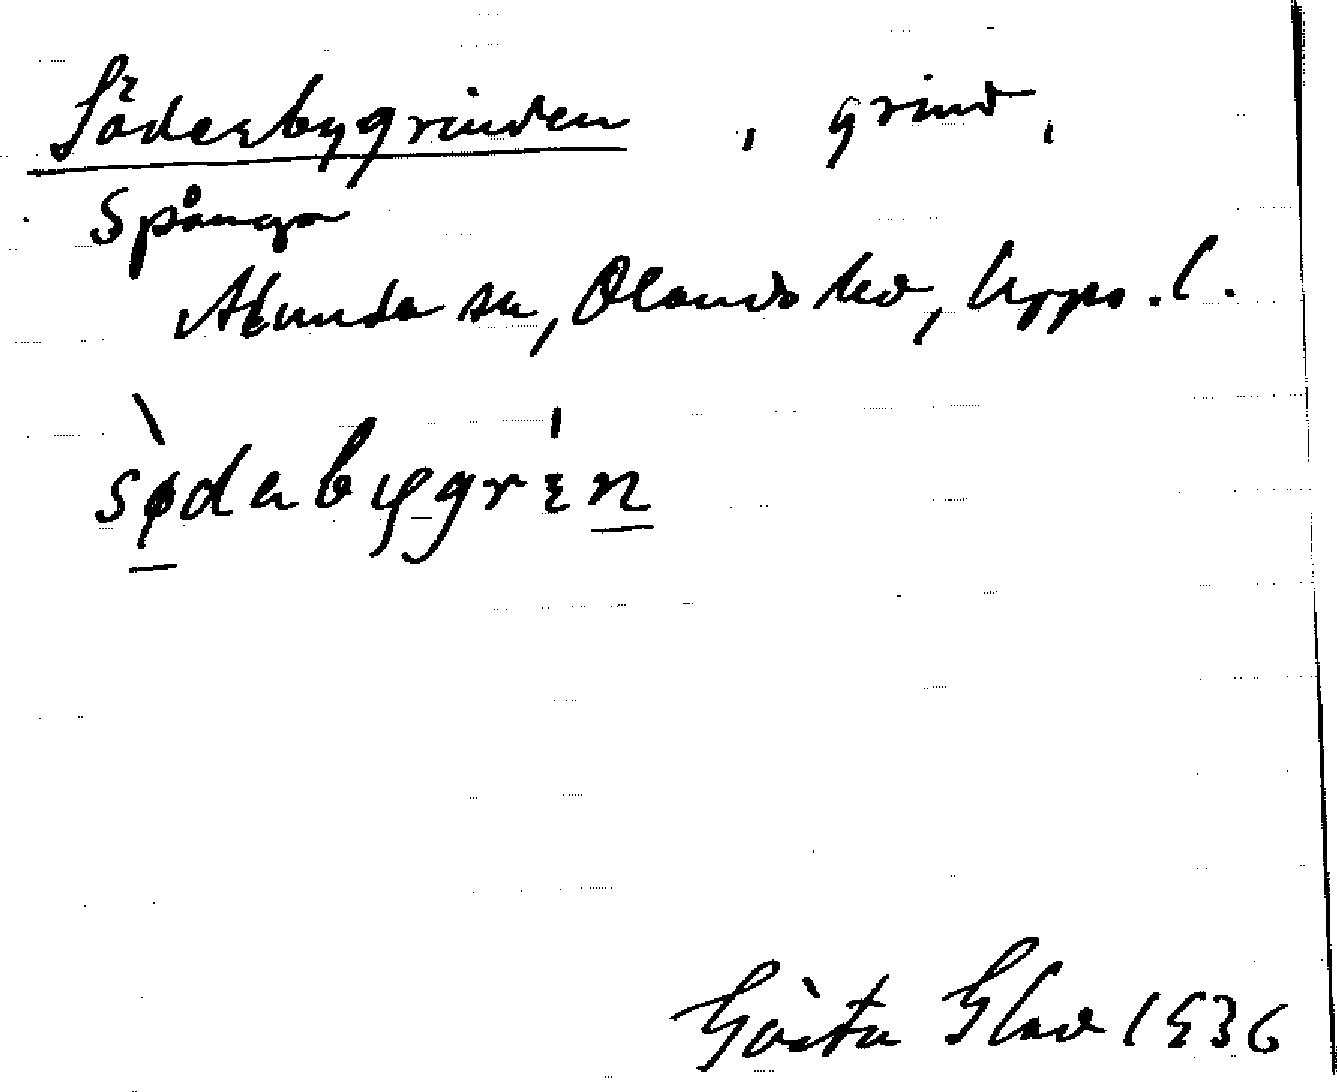 Söderbygrinden, grind,
Spånga
Alunda sn, Olands hd, Upps. l.
sødabygrin
Gösta Glad 1936